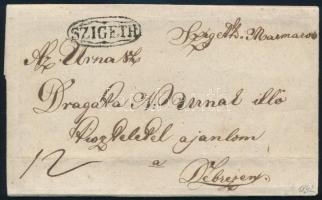 SZIGETH
Szigeth. Marmaros
Az Urnak
Dragota N. Urnak illő
tisztelettel ajanlom
a
12
Debrezen.